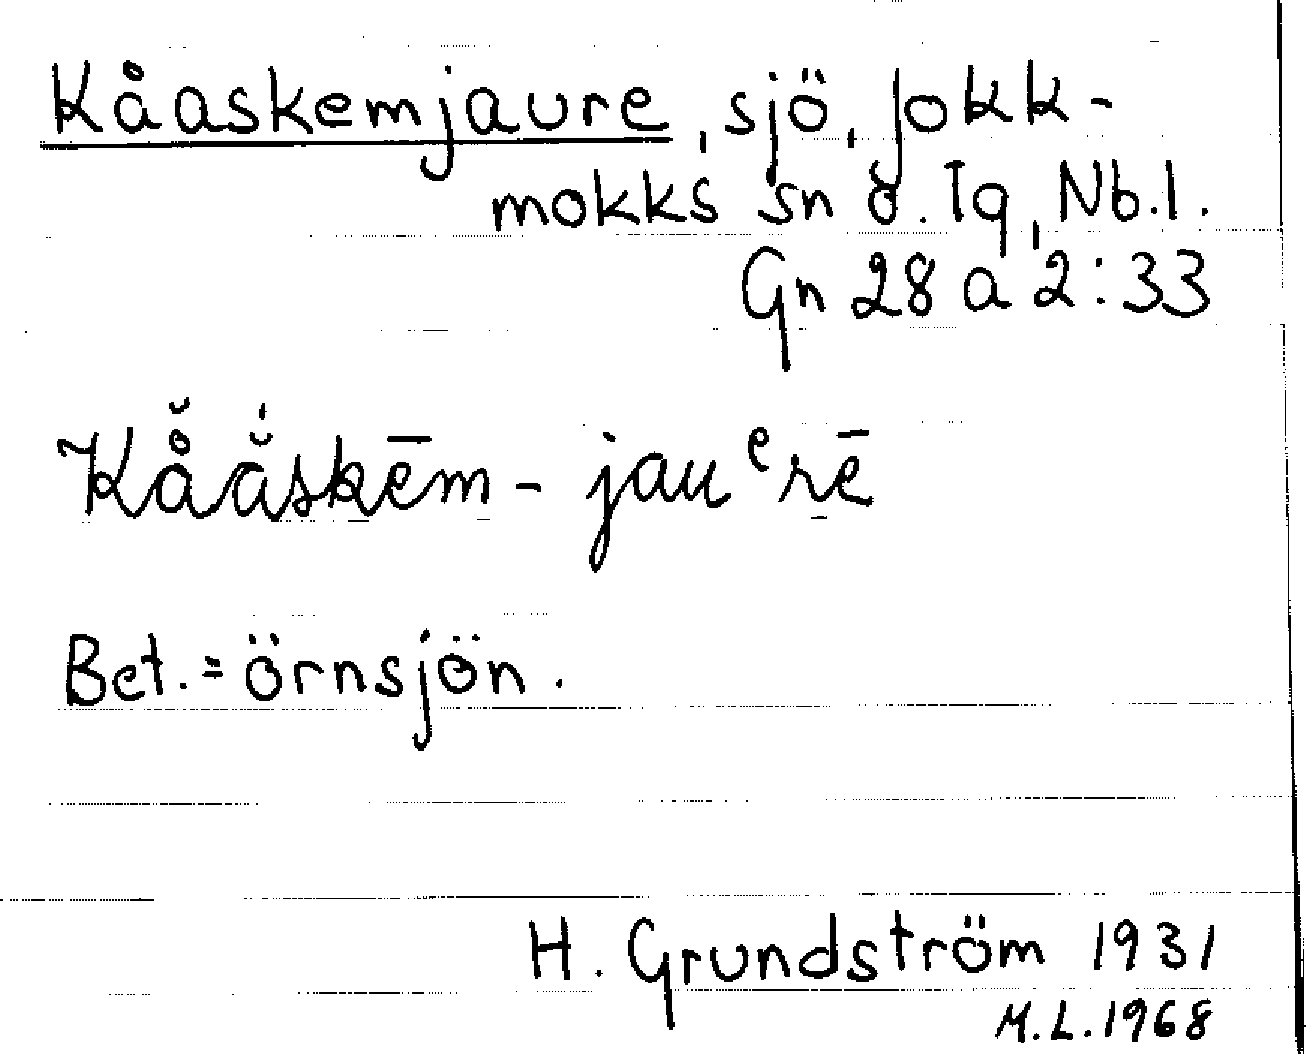 Kåaskemjaure, sjö, Jokk-
mokks sn o. tg, Nb.l.
Gn 28 a 2:33
Kå̆ä̆skēm - jauᵉrē
Bet. = örnsjön.
H. Grundström 1931
M.L. 1968